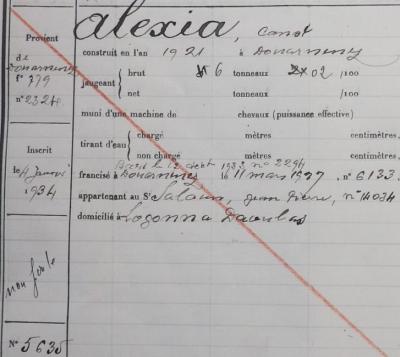 Alexia, Canot
Provient
de
Douarnenez
f° 779
n° 2324
construit en l'an 1921 à Douarnenez
jaugeant { brut 6 tonneaux 02 /100
net tonneaux /100
muni d'une machine de chevaux (puissance effective)
tirant d'eau { chargé mètres centimètres,
non chargé mètres centimètres.
Inscrit
le 4 Janvier
1934
Brest le 12 1933 n° 2294
francisé à Douarnenez le 11 mars 1927, n° 6133
appartenant au Sr Salaun, Jean Pierre, n° 14034
domicilié à Logonna Daoulas
non
N° 5635